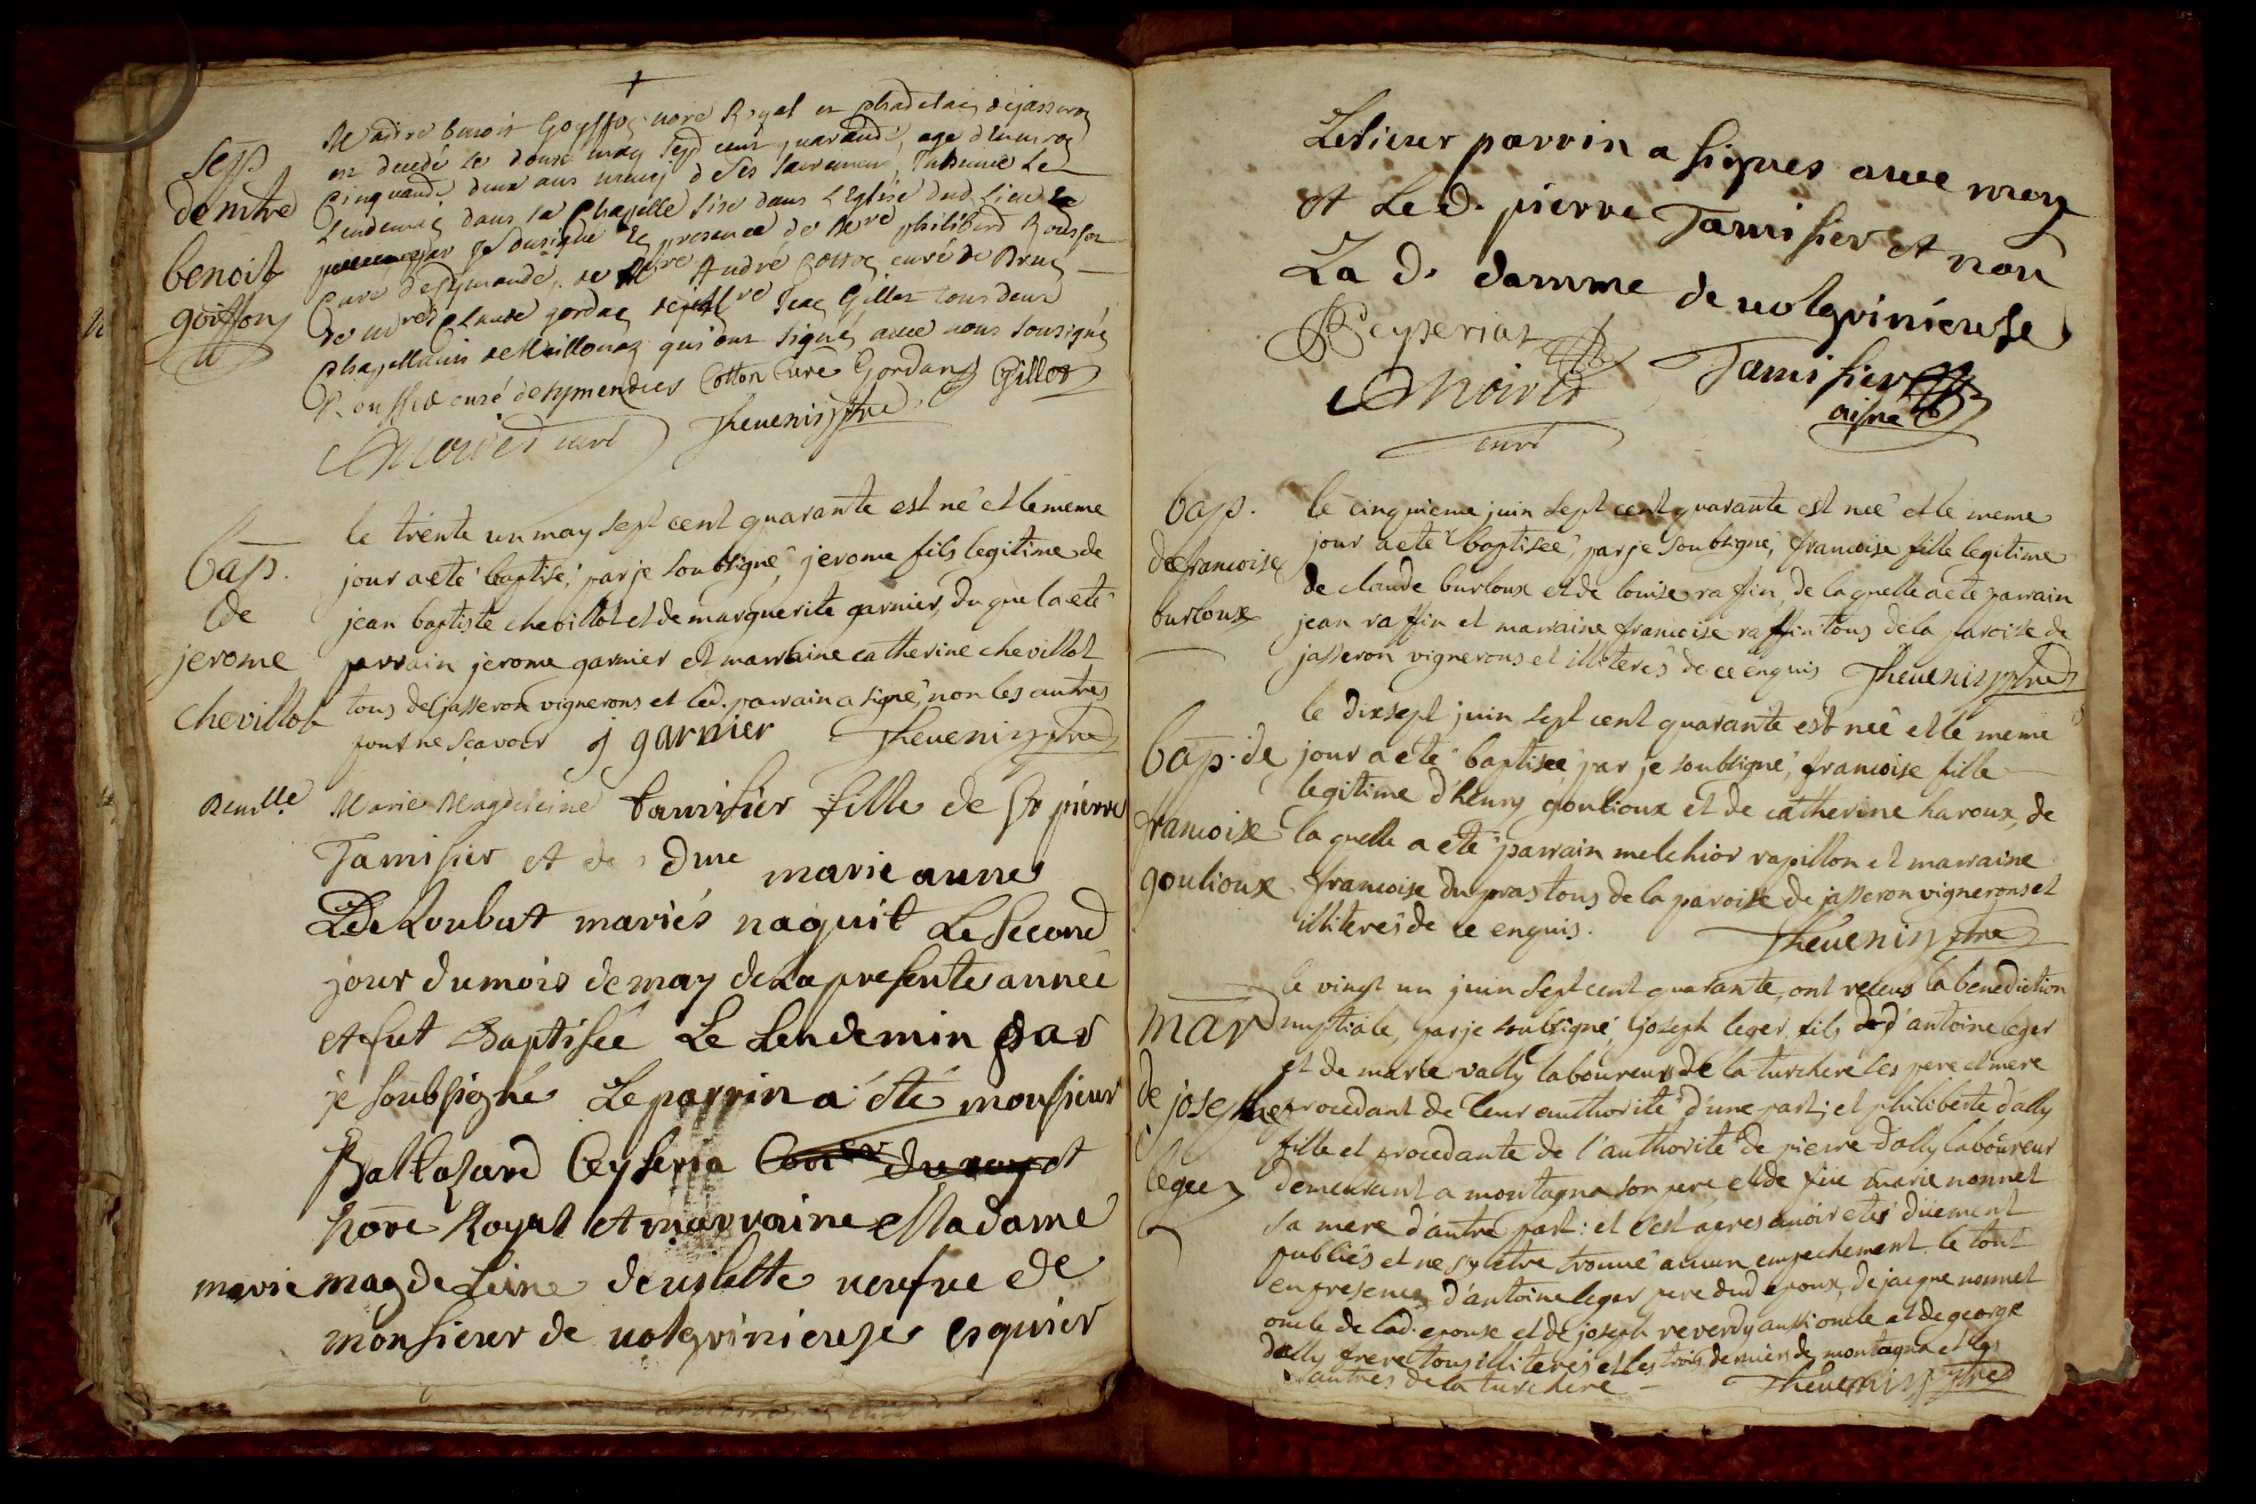 sep.
de mtre
benoit
goiffon
Maitre benoit Goyffon nore Royal et chatelain de jasseron
est decedé le douze may sept cent quarante, age d'environ
Cinquante deux ans muny de ses sacremens, Inhumé le
Lendemain dans sa Chapelle sise dans L'Eglise dud. Lieu
par Je soussigné En presence de Mre philibert Rousset
Curé de Tymandé, de Mre André Cotton curé de Drun
de Mre Claude gordan et Mre Jean Gillet tous deux
Chapellains de Meillonaz qui ont signé avec nous soussigné
Rousset curé de tymendres Cotton Curé Gordan Gillet
curé Thevenin ptre
bap.
de
jerome
chevillot
le trente un may sept cent quarante est né et le meme
jour a eté baptisé, par je soubsigné, jerome fils legitime de
jean baptiste chevillot et de marguerite garnier, du quel a eté
parrain jerome garnier et marraine catherine chevillot
tous de jasseron vignerons et led. parrain a signé, non les autres
pour ne sçavoir j garnier Thevenin ptre
Demlle Marie Magdeleine tamisier fille de Sr pierre
Tamisier et de Dme marie anne
De Loubat mariés naquit Le second
jour du mois de may de La presente année
et fut Baptisée Le Lendemin par
je soubsigné Le parrin a été monsieur
Baltasard Ceyseria du roy et
nore Royal et marraine Madame
marie magdeleine veufve de
monsieur de volgrinieuse esquier
Le sieur parrin a signes avec moy
et Led. pierre Tamisier et non
La d. damme de volgrinieuse
Ceyseriat
Tamisier
aisné
curé
bap.
de francoise
burloux
le cinquieme juin sept cent quarante est née et le meme
jour a eté baptisée, par je soubsigné, francoise fille legitime
de claude burloux et de louise raffin, de laquelle a eté parrain
jean raffin et marraine francoise raffin tous de la paroise de
jasseron vignerons et illiterés de ce enquis Thevenin ptre
bap. de
francoise
goulioux
le dixsept juin sept cent quarante est née et le meme
jour a eté baptisée, par je soubsigné, francoise fille
legitime d'henry goulioux et de catherine haroux, de
la quelle a eté parrain melchior rapillon et marraine
francoise du pras tous de la paroise de jasseron vignerons et
illiterés de ce enquis. Thevenin ptre
mar
de joseph
leger
le vingt un juin sept cent quarante, ont receus la benediction
nuptiale, par je soubsigné, joseph leger fils d'antoine leger
et de marie vally laboureur de la turchere ses pere et mere
procedant de leur authorité d'une part; et philiberte dally
fille et procedante de l'authorité de pierre dally laboureur
demeurant a montagna son pere et de füe marie nonnet
sa mere d'autre part: et c'est apres avoir etés düement
publiés et ne s'y etre trouvé aucun empechement le tout
en presence d'antoine leger pere dud. epoux, de jacque nonnet
oncle de lad. epouse et de joseph reverdy aussi oncle et de george
dally frere tous illiterés et les trois derniers de montagna et les
autres de la turchere - Thevenin ptre